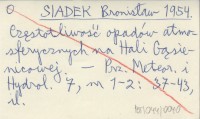 O SIADEK Bronisław 1954.
Częstotliwość opadów atmo-
sferycznych na Hali Gąsie-
nicowej. — Prz. Meteor. i
Hydrol. 7, nr 1-2: 37-43,
il.